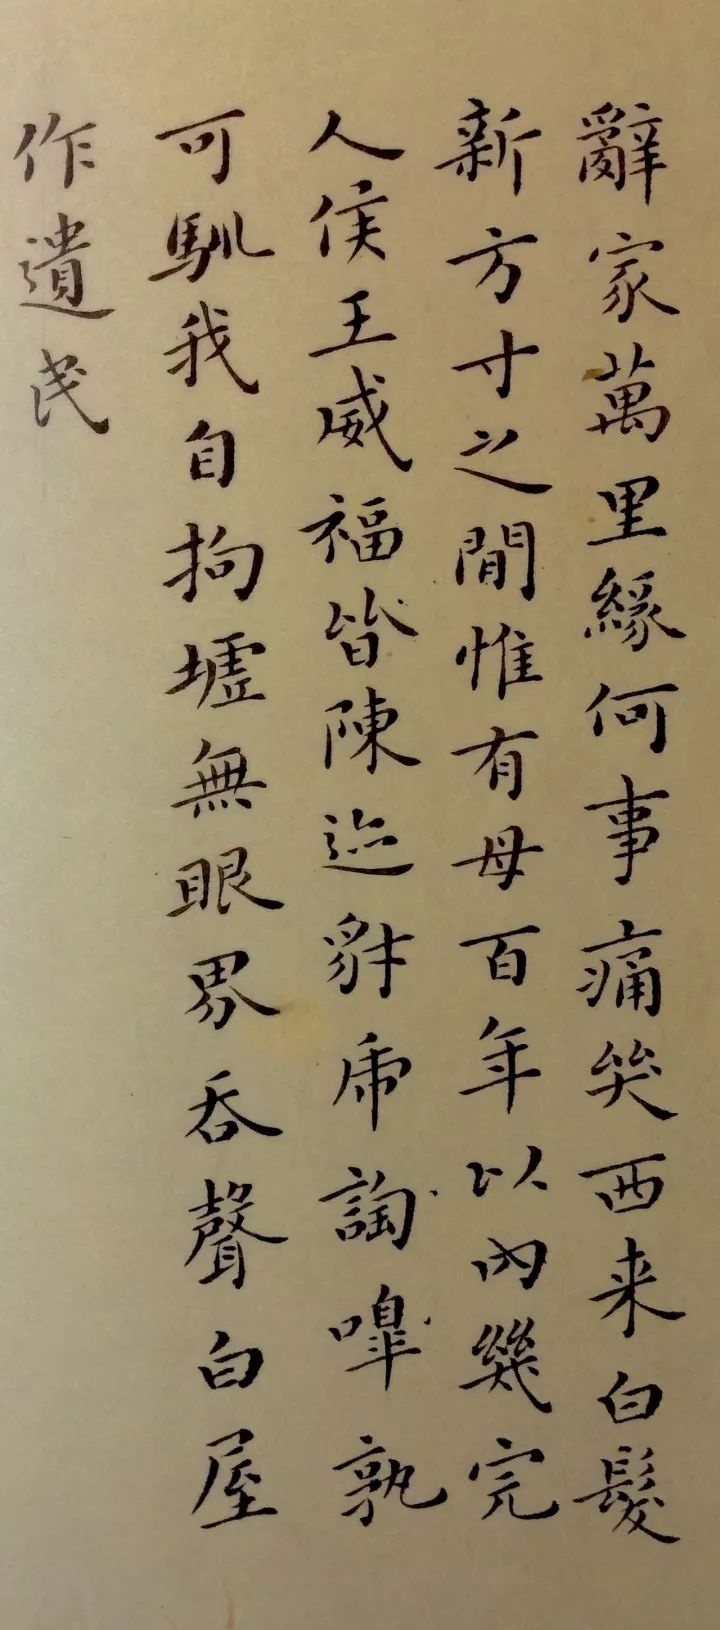 辭家萬里緣何事痛笑西来白髮
新方寸之間惟有母百年以內幾完
人侯王威福皆陳迹豺虎訽嘷孰
可馴我自拘墟無眼界吞聲白屋
作遺民